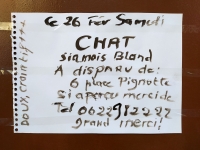 Ce 26 Fév Samedi
CHAT
siamois Blond
A disparu de:
6 place Pignotte
Si aperçu merci de
Tel 0622982292
grand merci!
DOUX, craintif